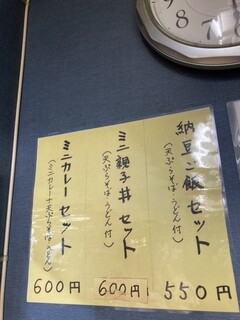 納豆ご飯セット
(天ぷらそば・うどん付)
550円
ミニ親子丼セット
(天ぷらそば・うどん付)
600円
ミニカレーセット
(ミニカレー+天ぷらそば・うどん)
600円
9
8
7
6
5